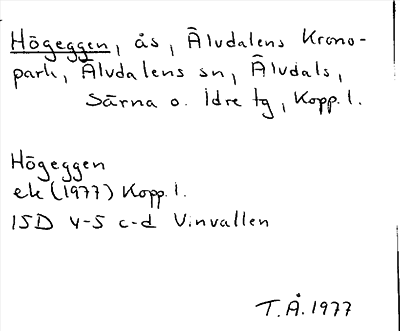 Högeggen, ås, Älvdalens Krono-
park, Älvdalens sn, Älvdals,
Särna o. Idre tg, Kopp. l.
Högeggen
ek (1977) Kopp. l.
15D 4-5 c-d Vinvallen
T.Å. 1977